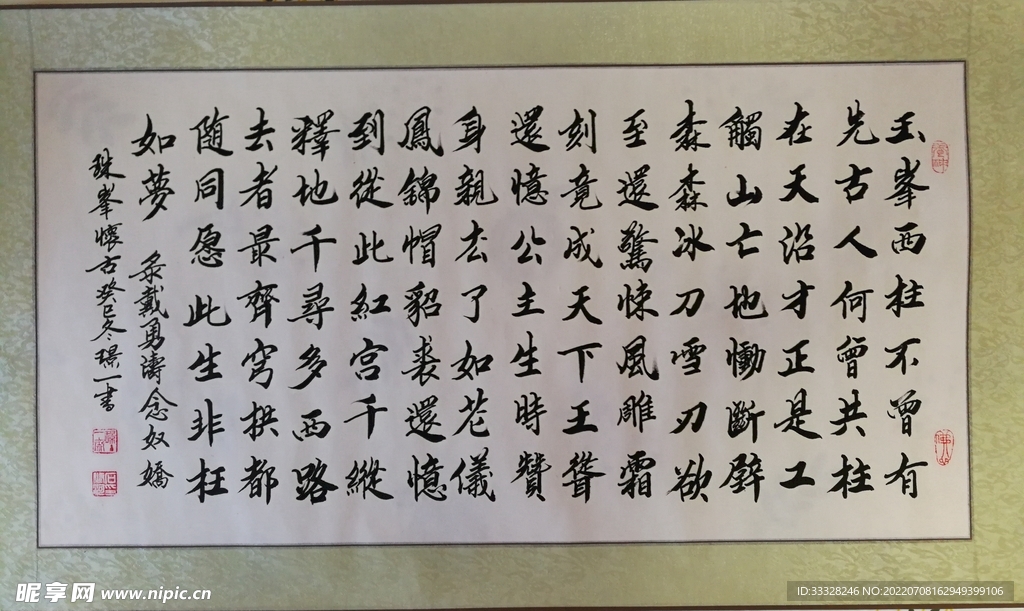 玉峯西柱不曾有
先古人何曾共柱
在天沿才正是工
觸山亡地慟斷壁
森森冰刀雪刃欲
至還驚悚風雕霜
刻竟成天下王聳
還憶公主生時贊
身親去了如花儀
鳳錦帽貂裘還憶
到從此紅宮千縱
釋地千尋多西路
去者最齊穹拱都
随同愿此生非枉
如夢 录戴勇濤念奴嬌
珠峯懷古癸巳冬璟一書
昵享网 www.nipic.cn
ID:33328246 NO:20220708162949399106